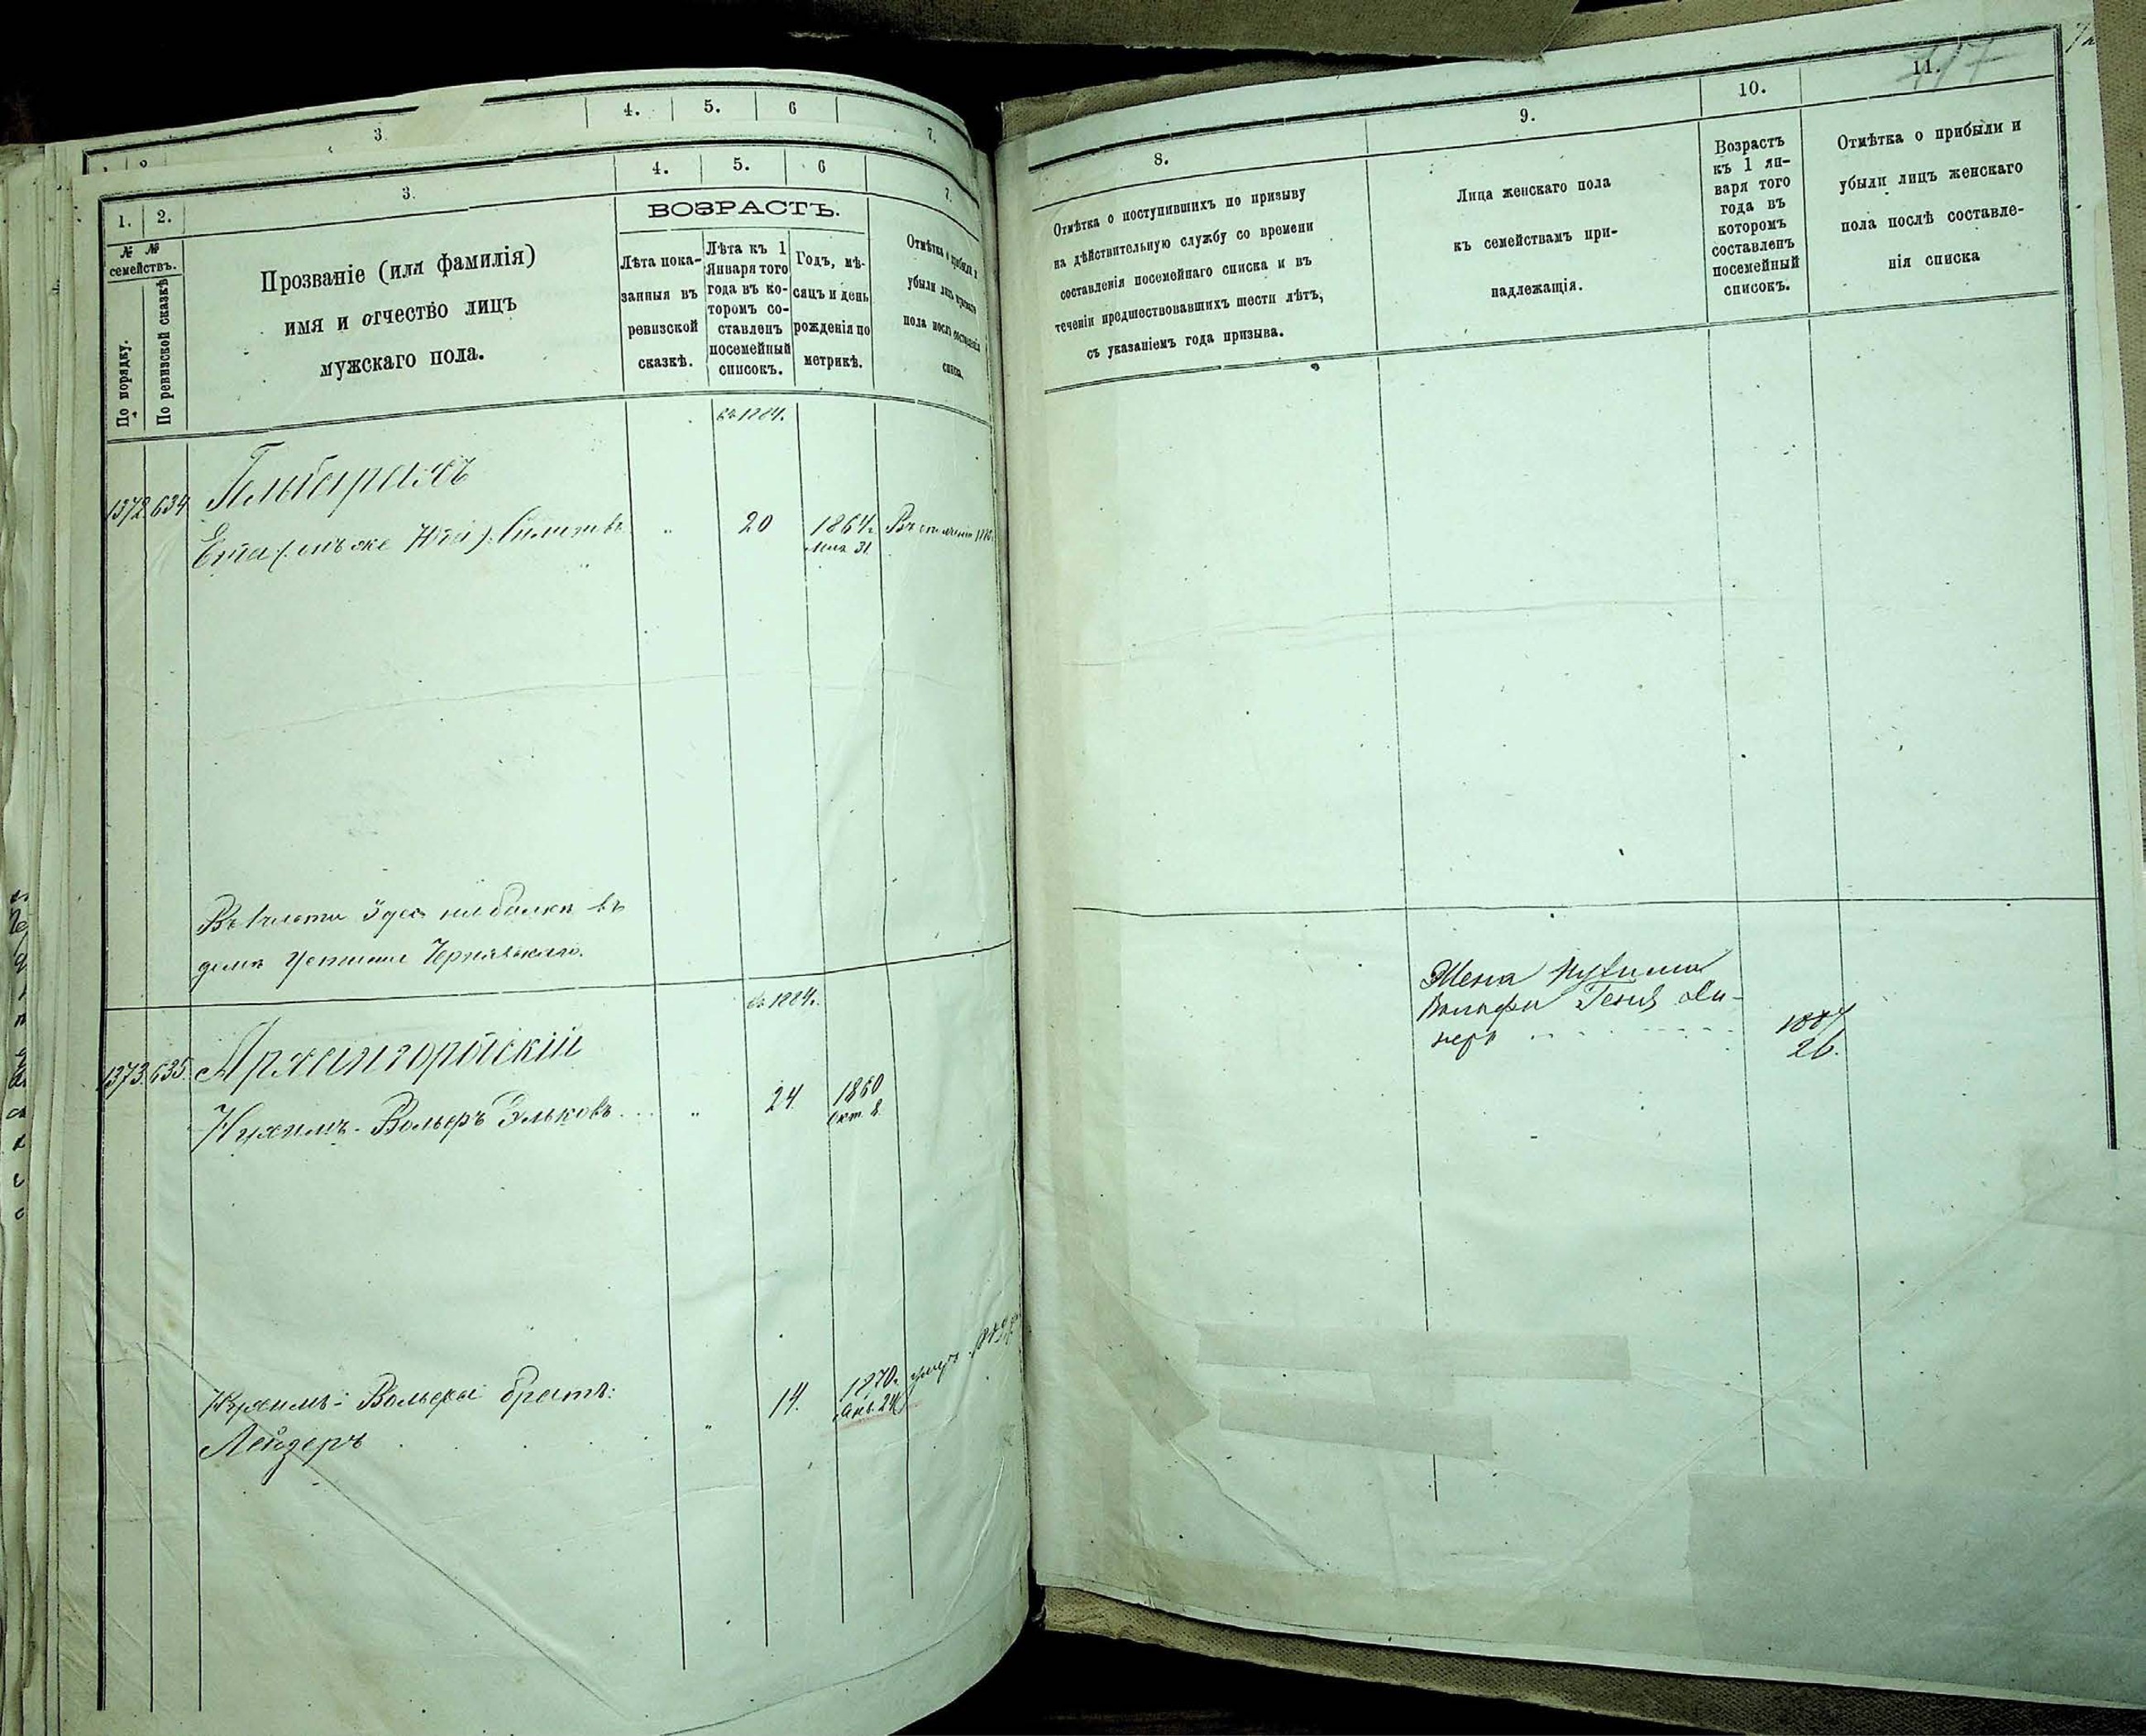 3. 4. 5. 6 7.
1. 2. 3. 4. 5. 6 7.
№ №
семействъ.
По порядку.
По ревизской сказкѣ
Прозваніе (или фамилія)
имя и отчество лицъ
мужскаго пола.
ВОЗРАСТЪ.
Лѣта пока-
занныя въ
ревизской
сказкѣ.
Лѣта къ 1
Января того
года въ ко-
торомъ со-
ставленъ
посемейный
списокъ.
Годъ, мѣ-
сяцъ и день
рожденія по
метрикѣ.
Отмѣтка о прибыли и
убыли лицъ мужскаго
пола послѣ составленія
списка.
къ 1884.
1372 634
20 1864г.
31
въ
дома Чернявскаго.
къ 1884.
1373 635
Архангородскій
Нухимъ-Вольфъ Эльковъ 24 1860
Окт. 8
Нухимъ-Вольфа братъ:
Лейзеръ 14. 1870г.
Янв. 24
8. 9. 10. 11.
Отмѣтка о поступившихъ по призыву
на дѣйствительную службу со времени
составленія посемейнаго списка и въ
теченіи предшествовавшихъ шести лѣтъ,
съ указаніемъ года призыва.
Лица женскаго пола
къ семействамъ при-
надлежащія.
Возрастъ
къ 1 ян-
варя того
года въ
которомъ
составленъ
посемейный
списокъ.
Отмѣтка о прибыли и
убыли лицъ женскаго
пола послѣ составле-
нія списка
Жена Нухима
Вольфа Геня
1884
26.